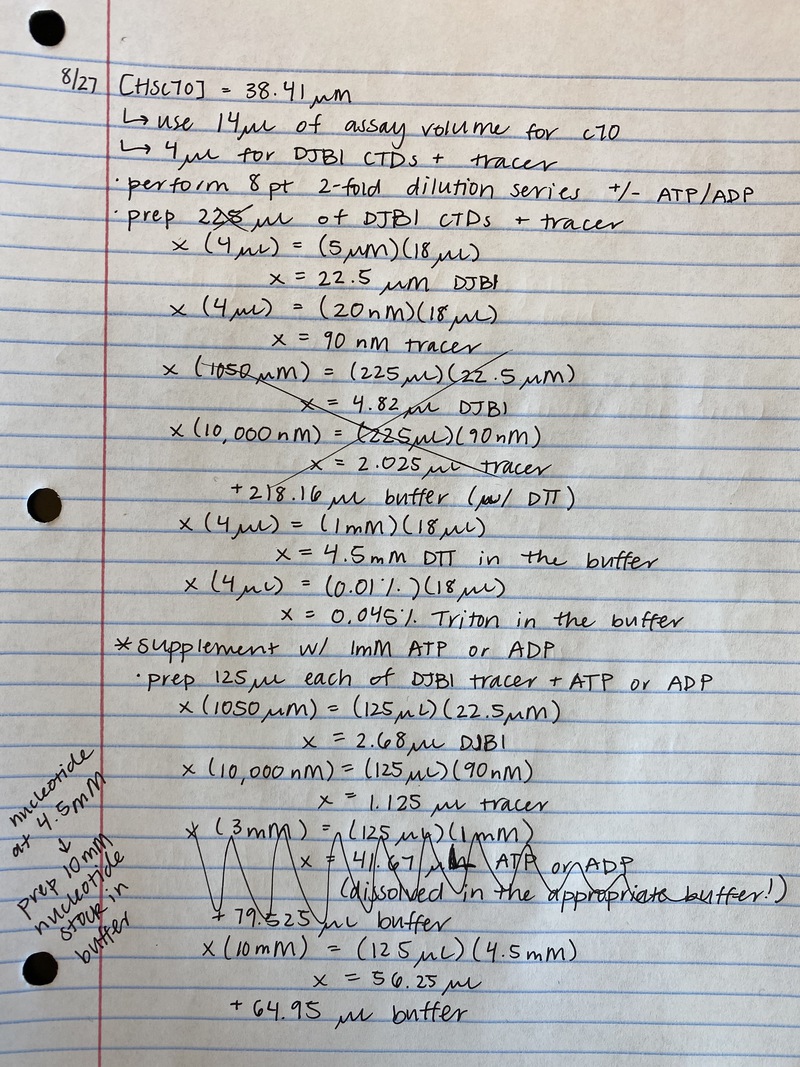 8/27 [HSC70] = 38.41 μM
↳ use 14μL of assay volume for c70
↳ 4μL for DJB1 CTDs + tracer
· perform 8 pt 2-fold dilution series +/- ATP/ADP
· prep 225 μL of DJB1 CTDs + tracer
x (4μL) = (5μM)(18μL)
x = 22.5 μM DJB1
x (4μL) = (20nM)(18μL)
x = 90 nM tracer
x (1050 μM) = (225μL)(22.5μM)
x = 4.82 μL DJB1
x (10,000nM) = (225μL)(90nM)
x = 2.025 μL tracer
+218.16 μL buffer (w/ DTT)
x (4μL) = (1mM)(18μL)
x = 4.5mM DTT in the buffer
x (4μL) = (0.01%)(18μL)
x = 0.045% Triton in the buffer
*supplement w/ 1mM ATP or ADP
· prep 125μL each of DJB1 tracer + ATP or ADP
x (1050μM) = (125μL)(22.5μM)
x = 2.68μL DJB1
x (10,000nM) = (125μL)(90nM)
x = 1.125 μL tracer
x (3mM) = (125μL)(1mM)
x = 41.67 μL ATP or ADP
(dissolved in the appropriate buffer!)
+ 79.525μL buffer
x (10mM) = (125μL)(4.5mM)
x = 56.25μL
+64.95 μL buffer
nucleotide
at 4.5mM
↓
prep 10mM
nucleotide
stock in
buffer